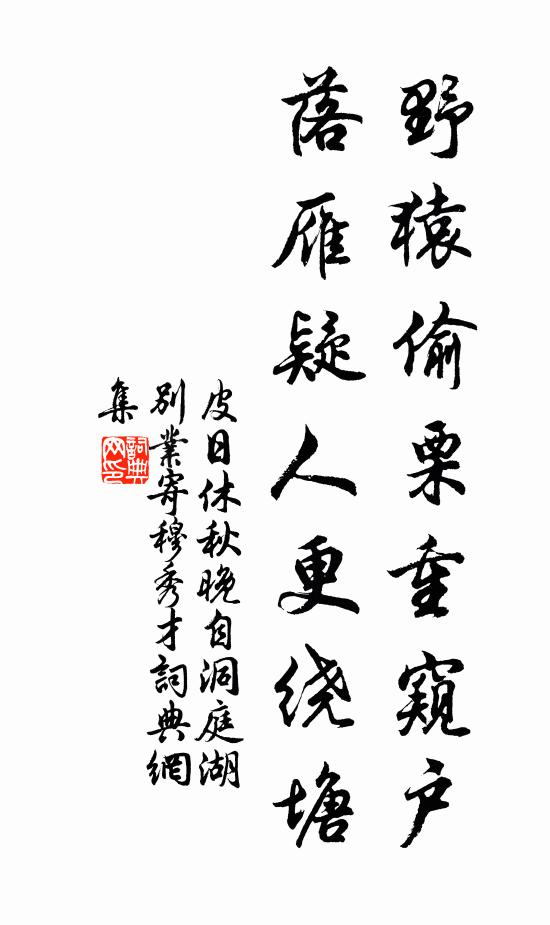 野猿偷栗重窺户
落雁疑人更绕塘
皮日休秋晚自洞庭湖
别業寄穆秀才詞典網
集
詞典網印